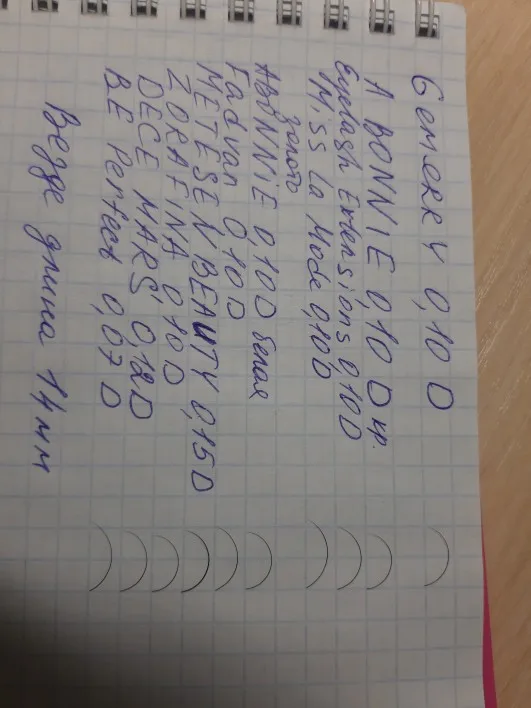 Gemerry 0,10 D
A BONNIE 0,10 D кр.
Eyelash Extensions 0,10D
Miss La Mode 0,10D
золото
ABONNIE 0,10D белая
Fadvan 0,10D
METESEN BEAUTY 0,15D
ZORAFINA 0,10D
DECE MARS 0,12D
BE Perfect 0,07D
Везде длина 14 мм